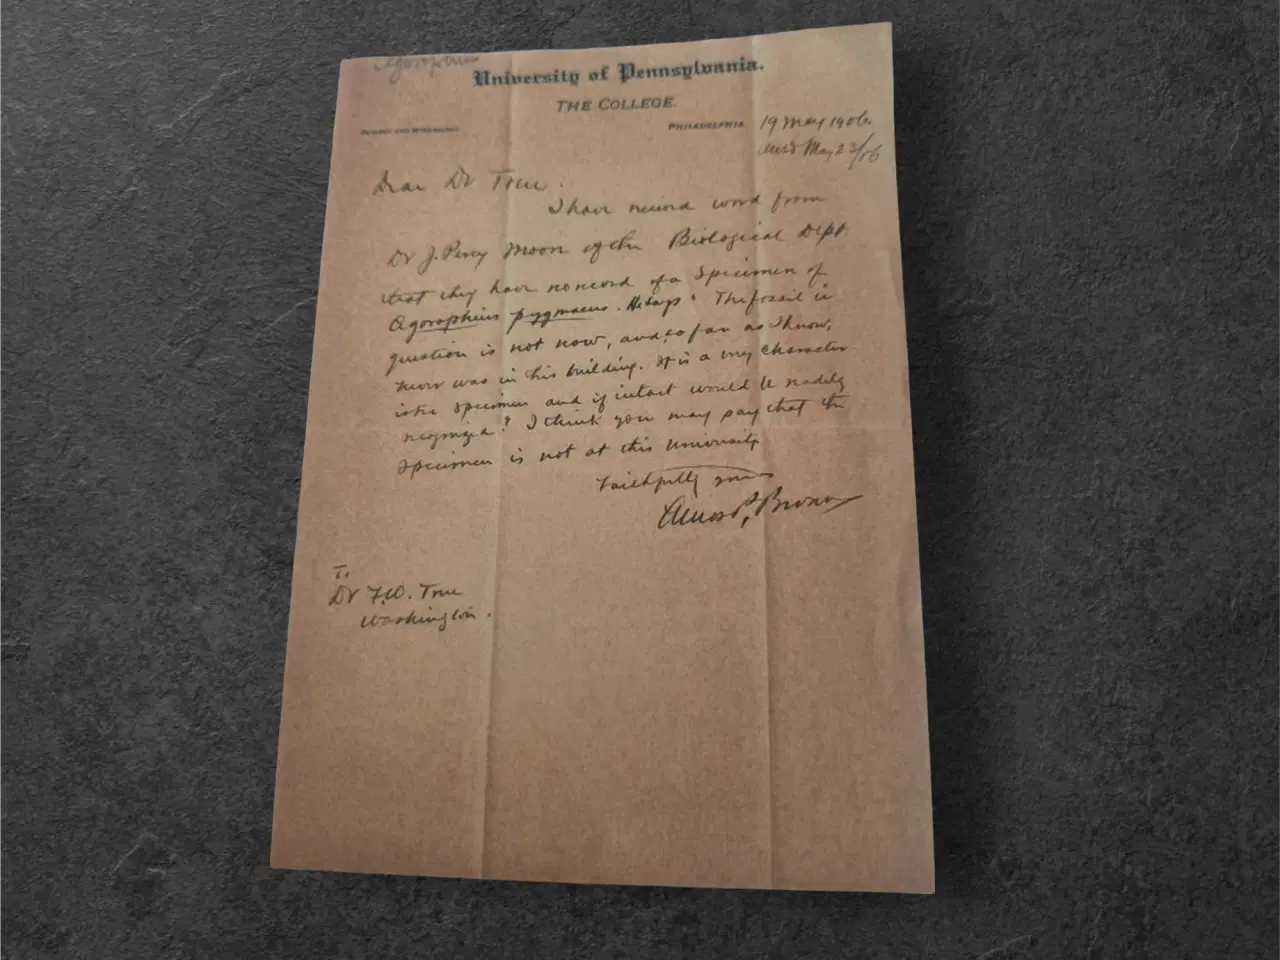 Agorophius
University of Pennsylvania.
THE COLLEGE.
GEOLOGY AND MINERALOGY.
PHILADELPHIA 19 May 1906.
May 23/06
Dear Dr True.
I have received word from
Dr J. Percy Moore of the Biological Dept.
that they have no record of a specimen of
Agorophius pygmaeus. He says "The fossil in
question is not now, and, so far as I know,
never was in this building. It is a very character
istic specimen and if intact would be readily
recognized" I think you may say that the
specimen is not at this University
Faithfully yours
Amos P. Brown
To
Dr F.W. True
Washington.